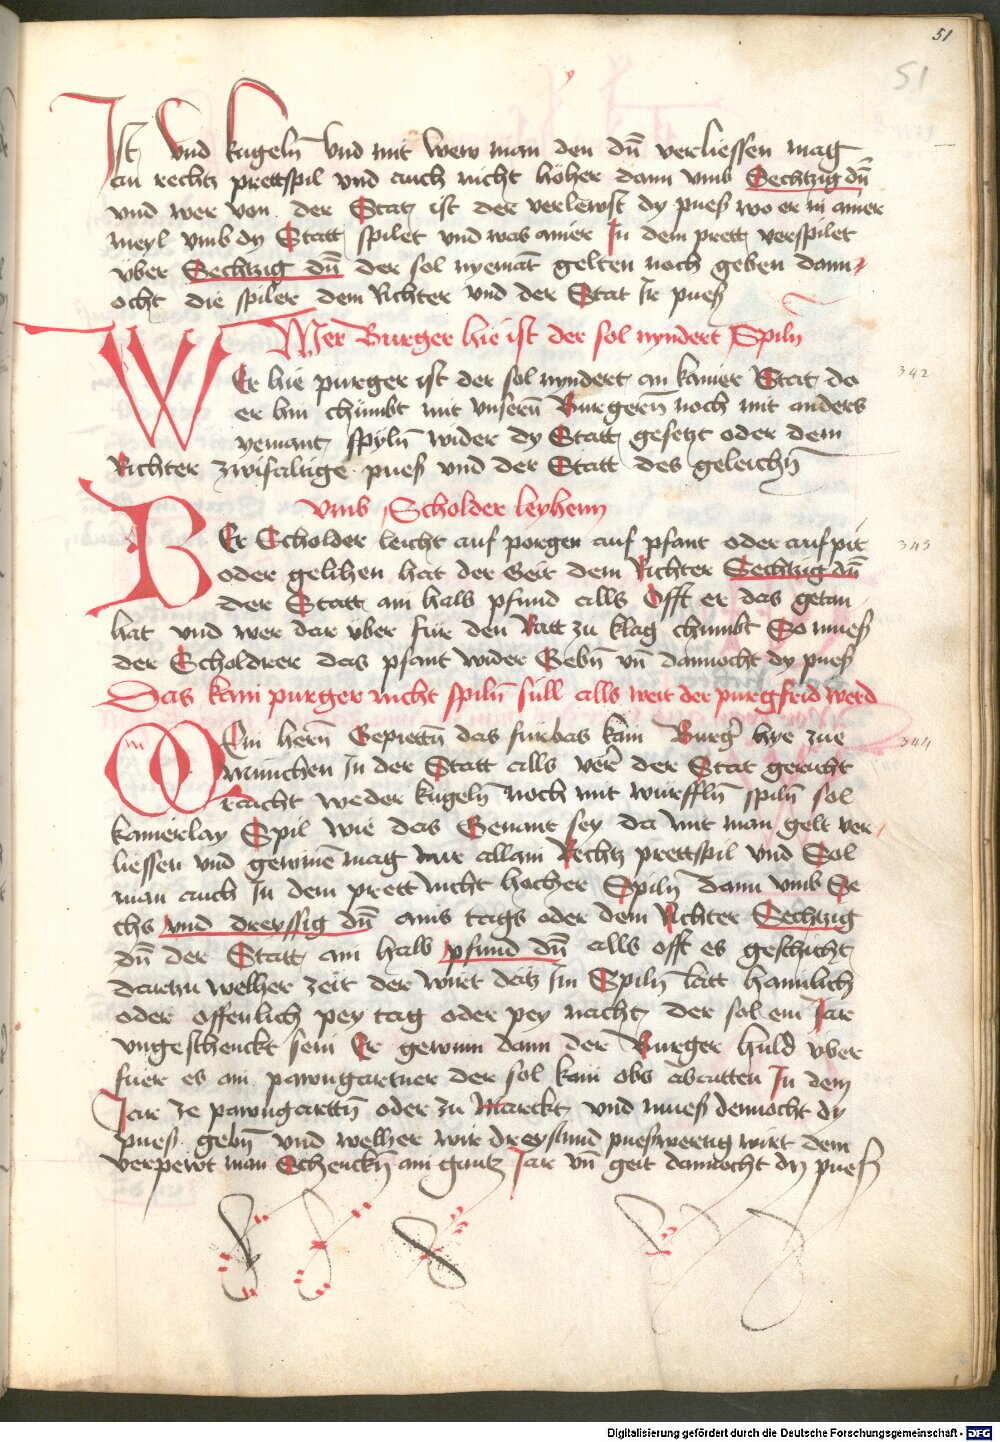 51
51
Ist und kugeln̄ Vnd mit wem man den dn̄ verliessen mag
an rechtz prettspil vnd auch nicht höher dann vmb Sechtzig dn̄
vnd wer von der Stat ist der verlewst dy pues wo er in ainer
meyl vmb dy Statt spilet vnd was ainer In dem prett verspilet
über Sechtzig dn̄ der sol nyemāt gelten noch geben dann
ocht die spiler dem Richter vnd der Stat Ir pues
Wer Burger hie ist der sol nyndert Spiln̄
342
WEr hie purger ist der sol nyndert an kainer Stat do
er hin chümbt mit vnsern̄ Burgern̄ noch mit anders
yemant spyln̄ wider dy Statt gesetzt oder dem
Richter zwifaltige pues vnd der Statt des geleichn̄
vmb Scholder leyhenn
343
BEr Scholder leicht auf porgen auf pfant oder auf pit
oder gelihen hat der Geit dem Richter Sechtzig dn̄
der Statt ain halb pfund alls Offt er das getan
hat vnd wer dar über für den Ratt zu klag chumbt So mues
der Scholdrer das pfant wider Gebn̄ vn̄ dannocht dy pues
Das kain purger nicht spiln̄ süll alls weit der purgfrid werd
344
MEin hern̄ Gepiettn̄ das fürbas kain Burgr̄ hye zue
München In der Statt alls verr̄ der Stat gericht
raicht weder kugeln̄ noch mit würffln̄ spiln̄ sol
kainerlay Spil wie das Genant sey da mit man gelt ver
liessen vnd gewinnē mag nur allain Rechtz prettspil vnd Sol
man auch In dem prett nicht hocher Spiln̄ dann vmb Se
chs vnd dreyssig dn̄ ains tags oder dem Richter Sechtzig
dn̄ der Statt ain halb pfund dn̄ alls offt es geschicht
dartzu welher zeit der wirt datz Im Spiln̄ latt haimlich
oder offenlich pey tag oder pey nacht der sol ein Jar
vngeschenckt sein Er gewinn dann der Burger huld vber
füer es ain pawngartner der sol kain obs abcutten In dem
Jar ze pawngarttn̄ oder zu Marckt vnd mues dennocht dy
pues gebn̄ vnd welher wir dreystund pueswertig wirt dem
verpewt man Schenckn̄ ain gantz Jar vn̄ geit dannocht dy pues
Digitalisierung gefördert durch die Deutsche Forschungsgemeinschaft - DFG